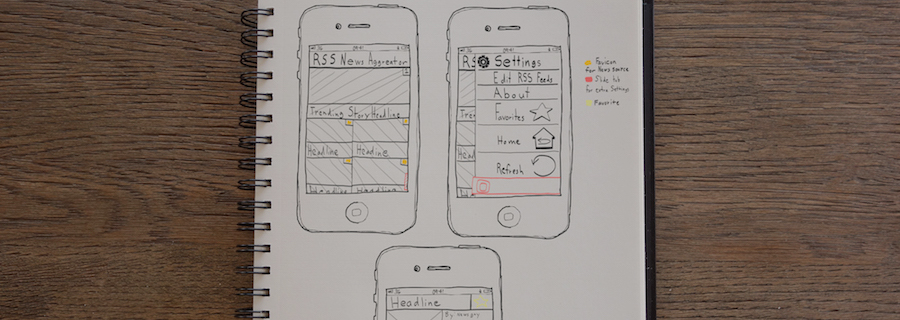 3G 09:41
RSS News Aggreator
1
Trending Story Headline
Headline Headine
Headline Headline
3G 09:41
RS Settings
Edit RSS Feeds
Tren About
Favorites
Head Home
Refresh
Favicon
for News source
Slide tab
for extra Settings
Favorite
3G 09:41
Headline
By